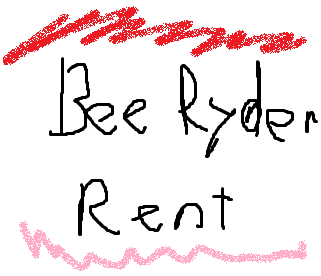 Bee Ryder
Rent